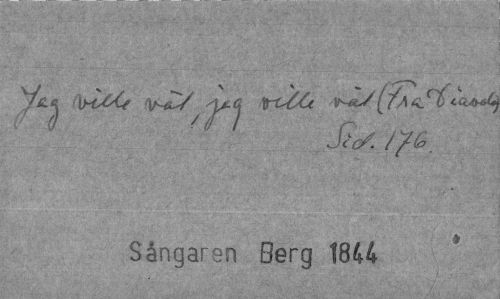 Jag ville väl, jag ville väl (Fra Diavolo)
Sid. 176.
Sångaren Berg 1844